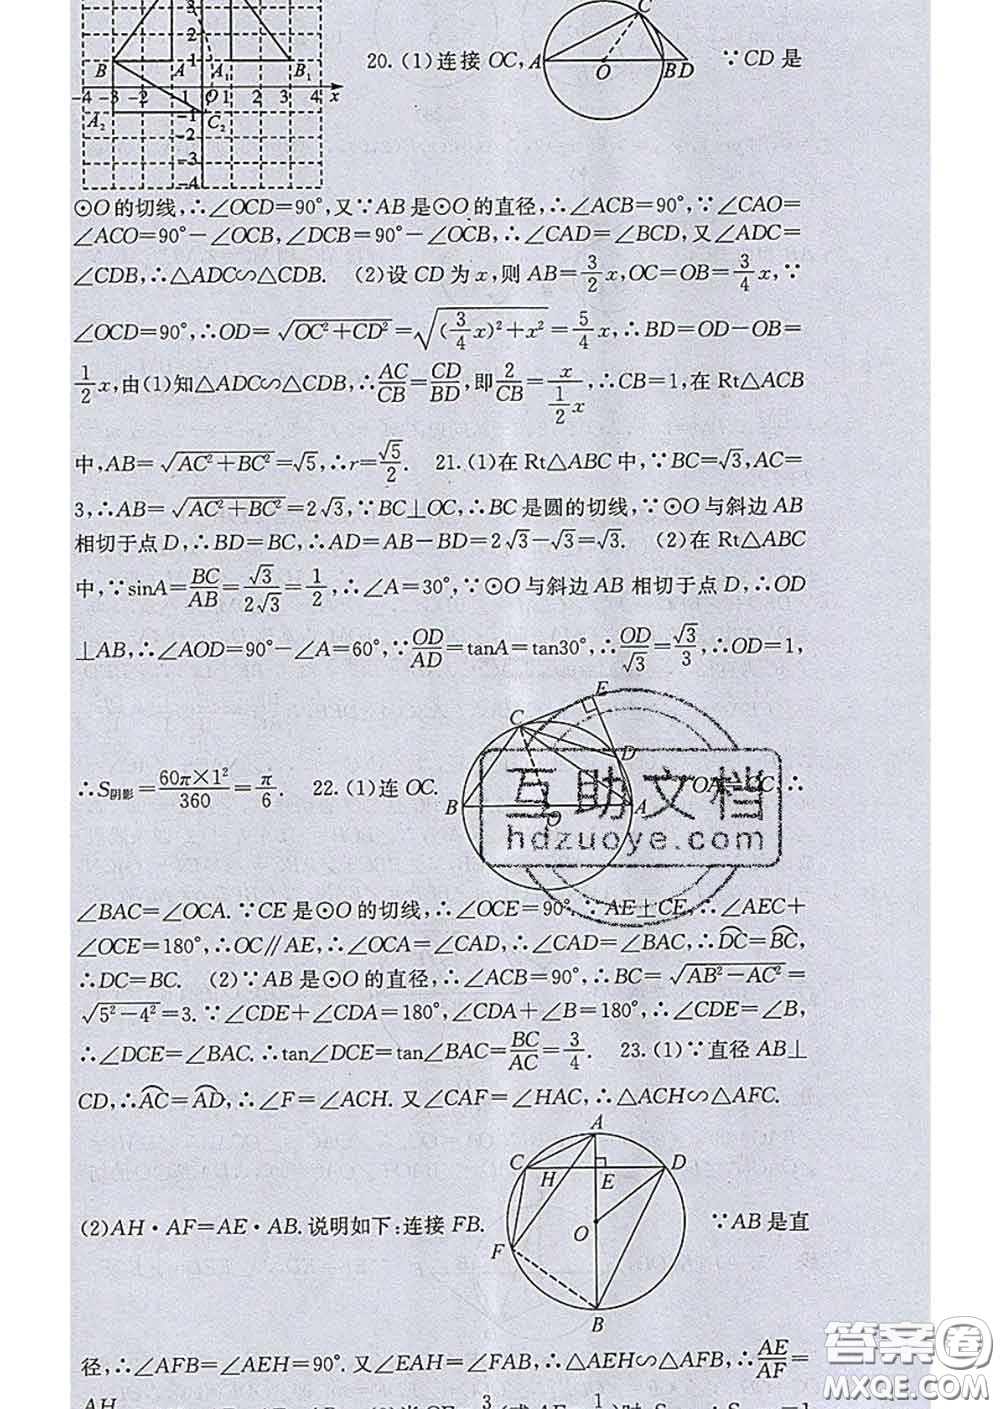 3
2
B A 1 A₁ B₁
-4 -3 -2 -1 O 1 2 3 4 x
A₂ -1 C₂
-2
-3
-4
20. (1)连接 OC, ∵CD 是
C
A O B D
⊙O 的切线,∴∠OCD=90°,又∵AB 是⊙O 的直径,∴∠ACB=90°,∵∠CAO=
∠ACO=90°-∠OCB,∠DCB=90°-∠OCB,∴∠CAD=∠BCD,又∠ADC=
∠CDB,∴△ADC∽△CDB. (2)设 CD 为 x,则 AB=3/2x,OC=OB=3/4x,∵
∠OCD=90°,∴OD=√(OC²+CD²)=√((3/4x)²+x²)=5/4x,∴BD=OD-OB=
1/2x,由(1)知△ADC∽△CDB,∴AC/CB=CD/BD,即2/CB=x/(1/2x),∴CB=1,在 Rt△ACB
中,AB=√(AC²+BC²)=√5,∴r=√5/2. 21.(1)在 Rt△ABC 中,∵BC=√3,AC=
3,∴AB=√(AC²+BC²)=2√3,∵BC⊥OC,∴BC 是圆的切线,∵⊙O 与斜边 AB
相切于点 D,∴BD=BC,∴AD=AB-BD=2√3-√3=√3. (2)在 Rt△ABC
中,∵sinA=BC/AB=√3/2√3=1/2,∴∠A=30°,∵⊙O 与斜边 AB 相切于点 D,∴OD
⊥AB,∴∠AOD=90°-∠A=60°,∵OD/AD=tanA=tan30°,∴OD/√3=√3/3,∴OD=1,
∴S阴影=60π×1²/360=π/6. 22.(1)连 OC. OA=OC,∴
C E D B O A
互助文档
hdzuoye.com
∠BAC=∠OCA.∵CE 是⊙O 的切线,∴∠OCE=90°,∵AE⊥CE,∴∠AEC+
∠OCE=180°,∴OC∥AE,∴∠OCA=∠CAD,∴∠CAD=∠BAC,∴DC⌒=BC⌒,
∴DC=BC. (2)∵AB 是⊙O 的直径,∴∠ACB=90°,∴BC=√(AB²-AC²)=
√(5²-4²)=3.∵∠CDE+∠CDA=180°,∠CDA+∠B=180°,∴∠CDE=∠B,
∴∠DCE=∠BAC.∴tan∠DCE=tan∠BAC=BC/AC=3/4. 23.(1)∵直径 AB⊥
CD,∴AC⌒=AD⌒,∴∠F=∠ACH.又∠CAF=∠HAC,∴△ACH∽△AFC.
(2)AH·AF=AE·AB.说明如下:连接 FB. ∵AB 是直
A C H E D O F B
径,∴∠AFB=∠AEH=90°.又∠EAH=∠FAB,∴△AEH∽△AFB,∴AE/AF=
AH
答案圈
MXQE.COM